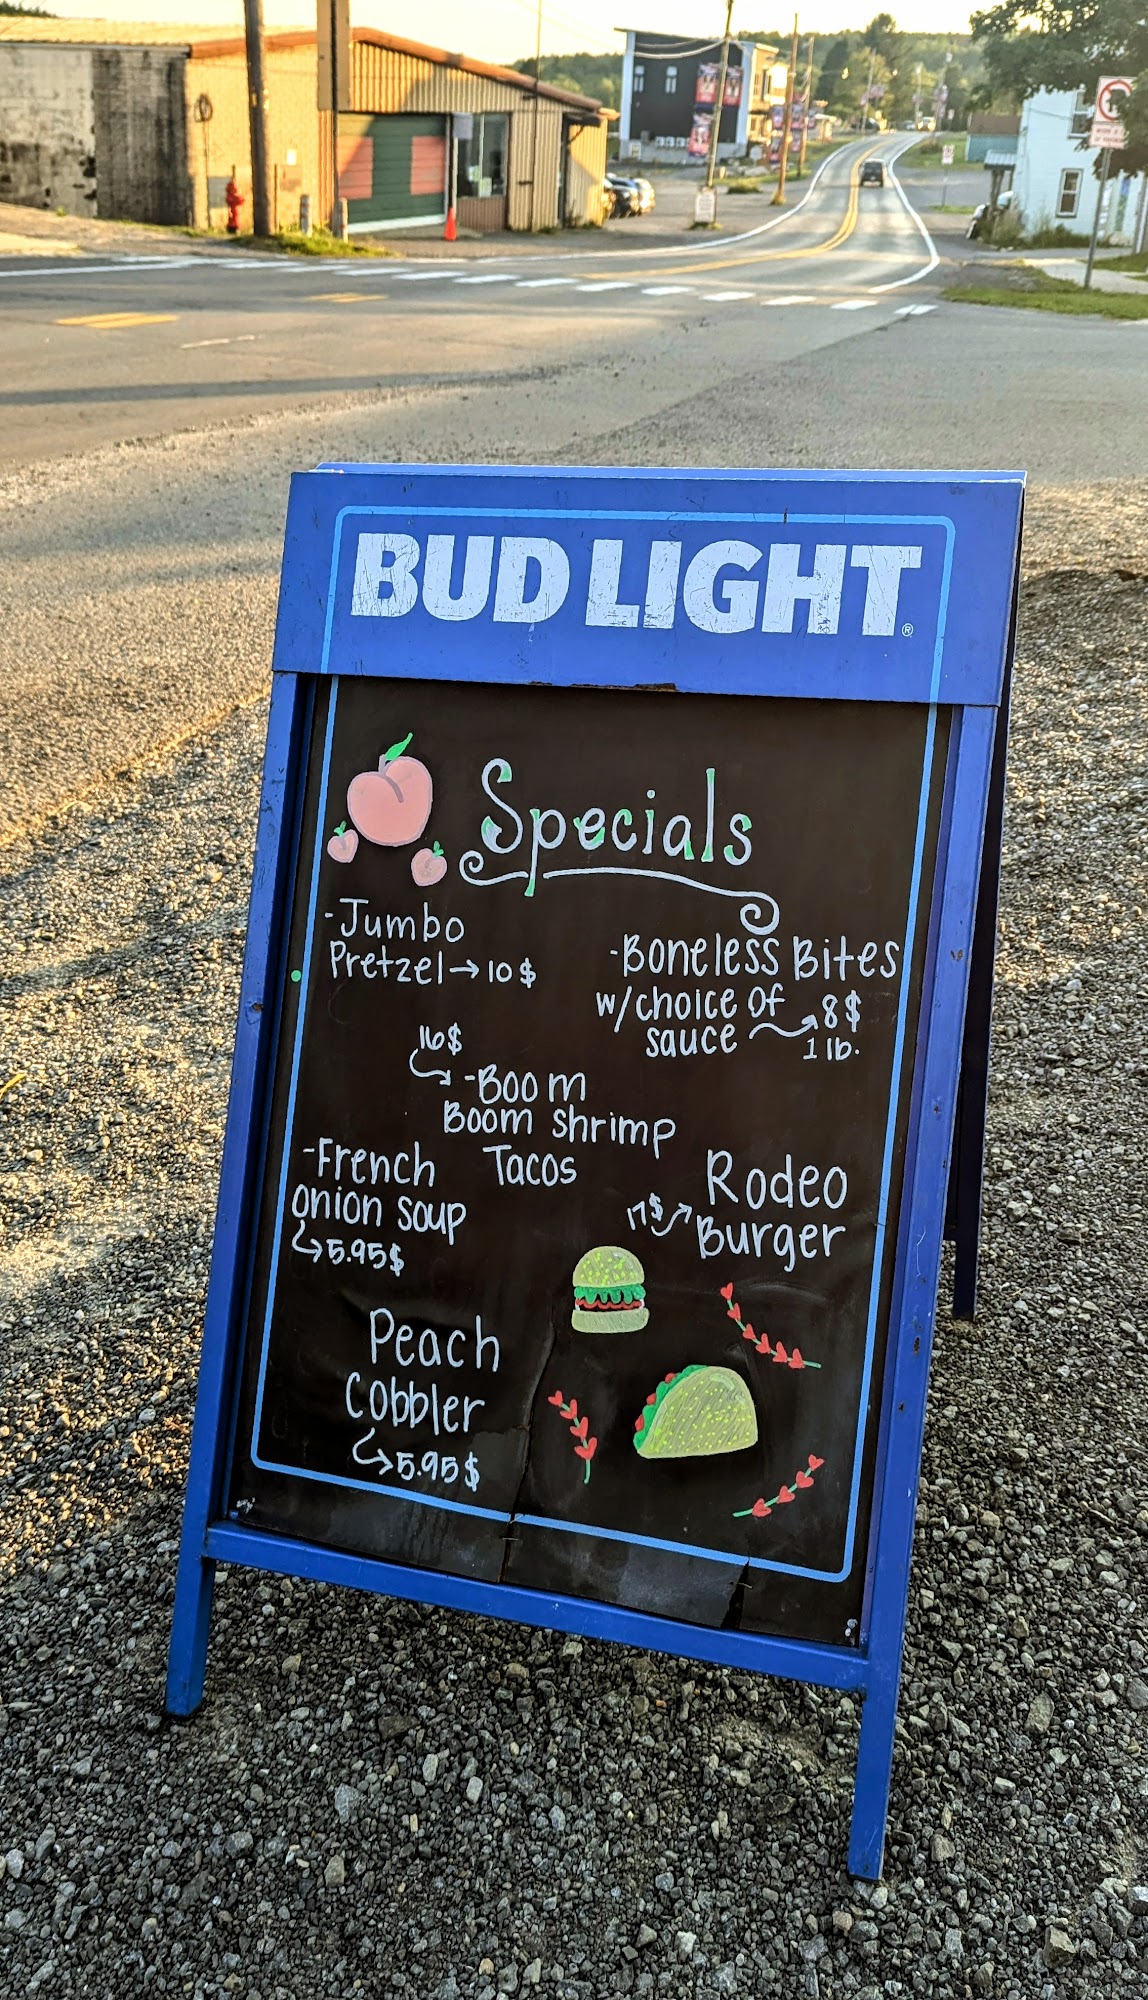 BUD LIGHT®
Specials
-Jumbo
Pretzel→10$
-Boneless Bites
w/choice of
sauce → 8$
1 lb.
16$
→ -Boom
Boom shrimp
Tacos
-French
onion soup
→5.95$
Rodeo
17$→Burger
Peach
Cobbler
→5.95$